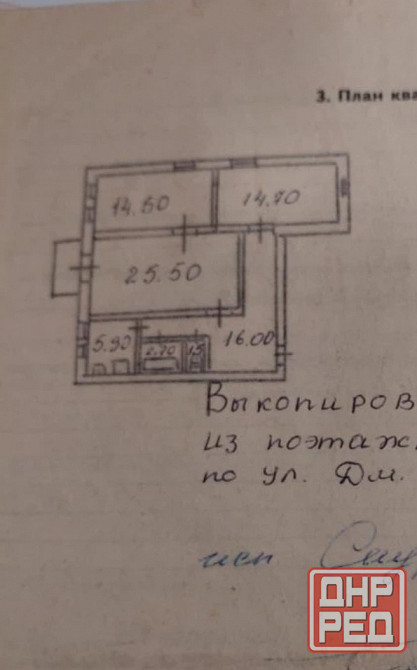 3. План ква
14.60
14.70
25.50
5.90
2.70
1.5
16.00
Выкопиров
из поэтаж.
по ул. Дм.
ДНР
РЕД